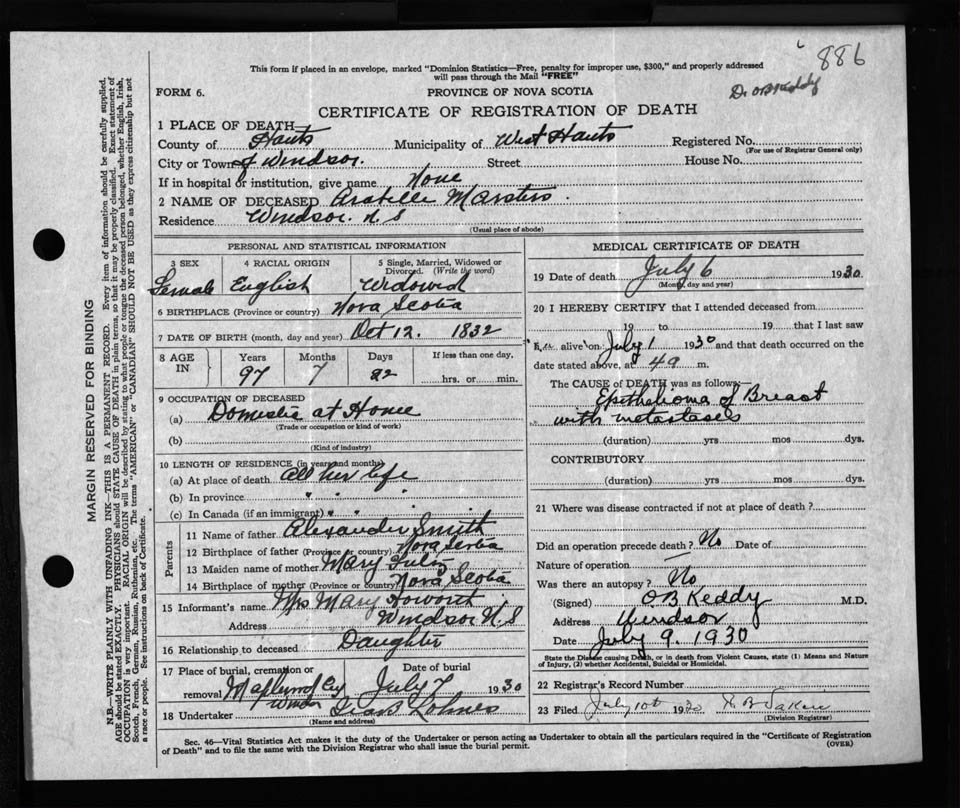 886
This form if placed in an envelope, marked "Dominion Statistics—Free, penalty for improper use, $300," and properly addressed
will pass through the Mail "FREE"
Dr OB Keddy
FORM 6.
PROVINCE OF NOVA SCOTIA
CERTIFICATE OF REGISTRATION OF DEATH
1 PLACE OF DEATH
County of Hants Municipality of West Hants Registered No.
(For use of Registrar General only)
City or Town of Windsor. Street House No.
If in hospital or institution, give name None
2 NAME OF DECEASED Arabelle Marsters.
Residence Windsor. N. S
(Usual place of abode)
PERSONAL AND STATISTICAL INFORMATION
3 SEX 4 RACIAL ORIGIN 5 Single, Married, Widowed or
Divorced. (Write the word)
Female English Widowed
6 BIRTHPLACE (Province or country) Nova Scotia
7 DATE OF BIRTH (month, day and year) Oct 12. 1832
8 AGE IN Years Months Days If less than one day,
97 7 22 hrs. or min.
9 OCCUPATION OF DECEASED
(a) Domestic at Home
(Trade or occupation or kind of work)
(b)
(Kind of industry)
10 LENGTH OF RESIDENCE (in years and months)
(a) At place of death all her life
(b) In province " " "
(c) In Canada (if an immigrant) " " "
Parents
11 Name of father Alexander Smith
12 Birthplace of father (Province or country) Nova Scotia
13 Maiden name of mother Mary
14 Birthplace of mother (Province or country) Nova Scotia
15 Informant's name Mrs Mary Howorth
Address Windsor N. S
16 Relationship to deceased Daughter
17 Place of burial, cremation or Date of burial
removal Maplewood Cey July 7 1930
Windsor
18 Undertaker Lohnes
(Name and address)
MEDICAL CERTIFICATE OF DEATH
19 Date of death July 6 1930
(Month, day and year)
20 I HEREBY CERTIFY that I attended deceased from
19 to 19 that I last saw
h alive on July 1 1930 and that death occurred on the
date stated above, at 4 a m.
The CAUSE of DEATH was as follows:—
Epithelioma of Breast
with metastases
(duration) yrs mos dys.
CONTRIBUTORY
(duration) yrs mos dys.
21 Where was disease contracted if not at place of death?
Did an operation precede death? No Date of
Nature of operation —
Was there an autopsy? No
(Signed) O.B Keddy M.D.
Address Windsor
Date July 9. 1930
State the Disease causing Death, or in death from Violent Causes, state (1) Means and Nature
of Injury, (2) whether Accidental, Suicidal or Homicidal.
22 Registrar's Record Number
23 Filed July 10th 1930
(Division Registrar)
Sec. 46—Vital Statistics Act makes it the duty of the Undertaker or person acting as Undertaker to obtain all the particulars required in the "Certificate of Registration
of Death" and to file the same with the Division Registrar who shall issue the burial permit.
(OVER)
MARGIN RESERVED FOR BINDING
N.B.—WRITE PLAINLY WITH UNFADING INK—THIS IS A PERMANENT RECORD. Every item of information should be carefully supplied.
AGE should be stated EXACTLY. PHYSICIANS should STATE CAUSE OF DEATH in plain terms, so that it may be properly classified. Exact statement of
OCCUPATION is very important. RACIAL ORIGIN will be described by stating to what people or tongue the deceased person belonged, whether English, Irish,
Scotch, French, German, Russian, Ruthenian, etc. The terms "AMERICAN" or "CANADIAN" SHOULD NOT BE USED as they express citizenship but not
a race or people. See instructions on back of Certificate.